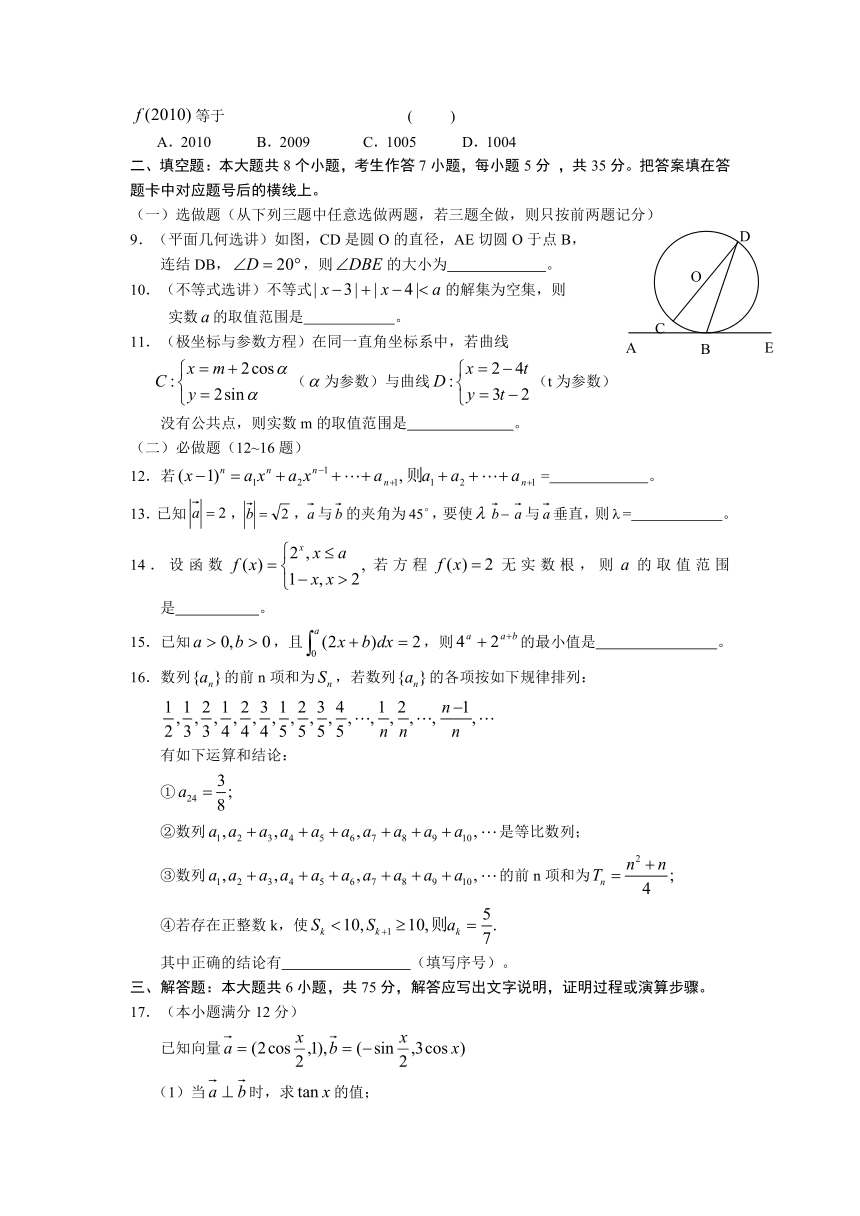 f(2010) 等于 ( )
A．2010 B．2009 C．1005 D．1004
二、填空题：本大题共 8 个小题，考生作答 7 小题，每小题 5 分 ，共 35 分。把答案填在答
题卡中对应题号后的横线上。
（一）选做题（从下列三题中任意选做两题，若三题全做，则只按前两题记分）
9．（平面几何选讲）如图，CD 是圆 O 的直径，AE 切圆 O 于点 B，
连结 DB，∠D = 20°，则 ∠DBE 的大小为 ______ 。
10．（不等式选讲）不等式 | x − 3 | + | x − 4 | < a 的解集为空集，则
实数 a 的取值范围是 ______ 。
11．（极坐标与参数方程）在同一直角坐标系中，若曲线
C : { x = m + 2cos α, y = 2sin α （α 为参数）与曲线 D : { x = 2 − 4t, y = 3t − 2 （t 为参数）
没有公共点，则实数 m 的取值范围是 ______ 。
D
O
C
A B E
（二）必做题（12~16 题）
12．若 (x − 1)^n = a_1 x^n + a_2 x^{n−1} + ⋯ + a_{n+1}, 则 a_1 + a_2 + ⋯ + a_{n+1} = ______ 。
13．已知 |a⃗| = 2，|b⃗| = √2，a⃗ 与 b⃗ 的夹角为 45°，要使 λ b⃗ − a⃗ 与 a⃗ 垂直，则 λ = ______ 。
14．设函数 f(x) = { 2^x, x ≤ a; 1 − x, x > 2 , 若方程 f(x) = 2 无实数根，则 a 的取值范围
是 ______ 。
15．已知 a > 0, b > 0，且 ∫_0^a (2x + b)dx = 2，则 4^a + 2^{a+b} 的最小值是 ______ 。
16．数列 {a_n} 的前 n 项和为 S_n，若数列 {a_n} 的各项按如下规律排列：
1/2, 1/3, 2/3, 1/4, 2/4, 3/4, 1/5, 2/5, 3/5, 4/5, ⋯, 1/n, 2/n, ⋯, (n−1)/n, ⋯
有如下运算和结论：
① a_24 = 3/8;
②数列 a_1, a_2 + a_3, a_4 + a_5 + a_6, a_7 + a_8 + a_9 + a_10, ⋯ 是等比数列；
③数列 a_1, a_2 + a_3, a_4 + a_5 + a_6, a_7 + a_8 + a_9 + a_10, ⋯ 的前 n 项和为 T_n = (n^2 + n)/4;
④若存在正整数 k，使 S_k < 10, S_{k+1} ≥ 10, 则 a_k = 5/7.
其中正确的结论有 ______ （填写序号）。
三、解答题：本大题共 6 小题，共 75 分，解答应写出文字说明，证明过程或演算步骤。
17．（本小题满分 12 分）
已知向量 a⃗ = (2cos x/2, 1), b⃗ = (−sin x/2, 3cos x)
（1）当 a⃗ ⊥ b⃗ 时，求 tan x 的值；